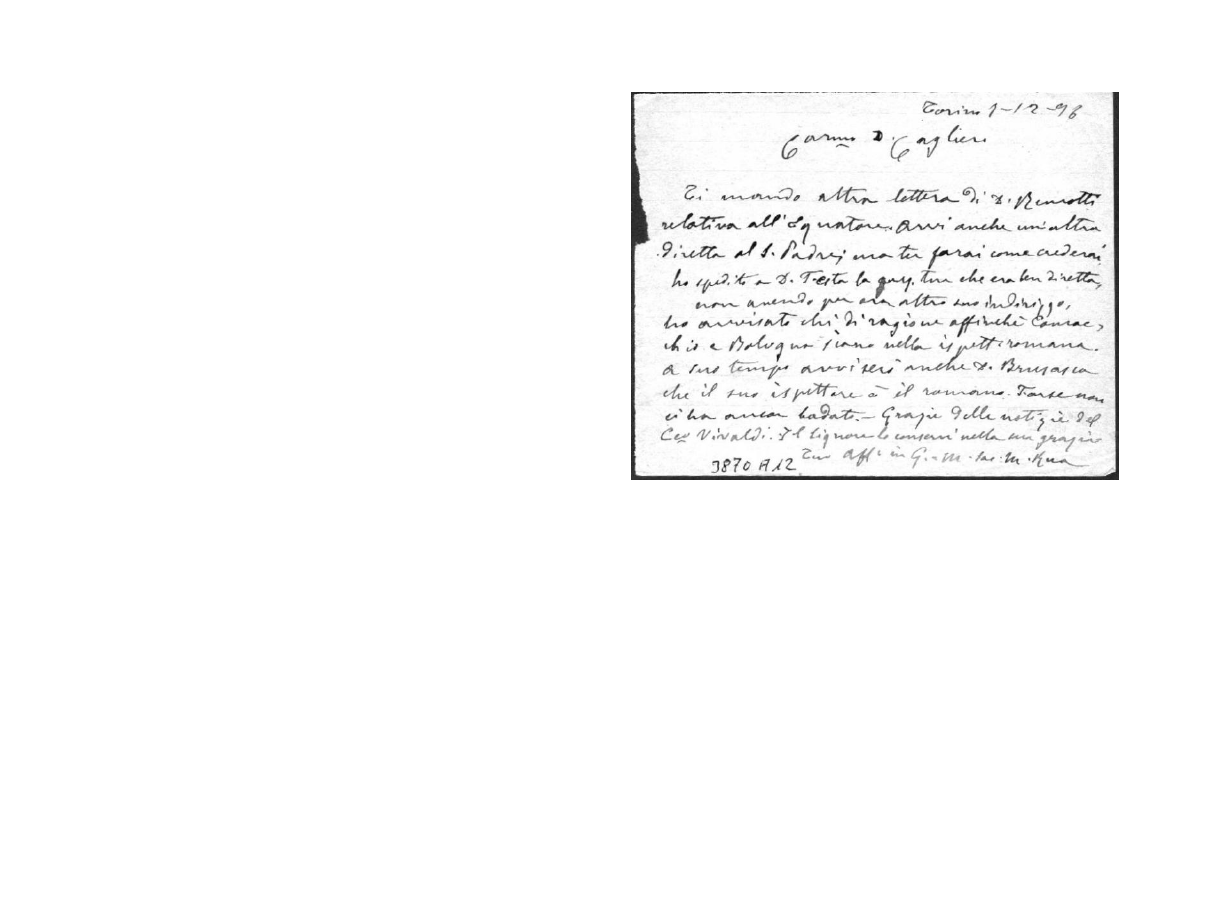 Torino 1-12-96
Carmo D. Cagliero
Ti mando altra lettera di D.
relativa all'Equatore. Avvi anche un'altra
diretta al S. Padre; ma tu farai come crederai
ho spedito a D. Testa la che era ben diretta,
non avendo per ora altro suo indirizzo,
ho avvisato chi di ragione affinchè Comac,
chio e Bologna siano nella ispett. romana.
A suo tempo avviserò anche D. Brusasca
che il suo ispettore è il romano. Forse non
ci ha ancor badato. — Grazie delle notizie del
Cco Vivaldi. Il Signore lo conservi nella sua grazia
Tuo Aff. in G. e M. Sac. M. Rua
3870 A12